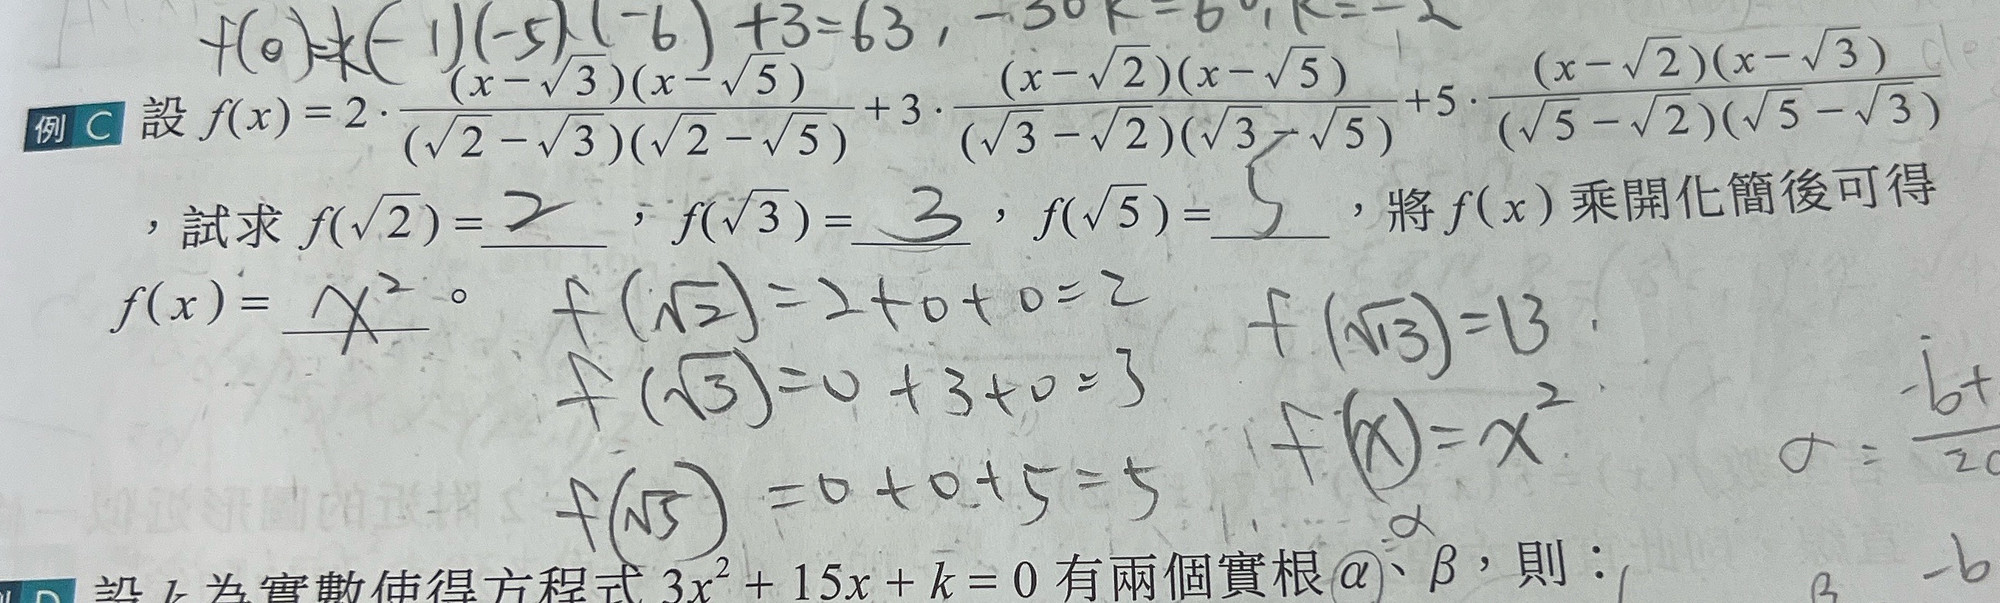 f(0)=k(-1)(-5)(-6)+3=63, -30k=60, k=-2
例 C 設 f(x)=2·\frac{(x-√3)(x-√5)}{(√2-√3)(√2-√5)}+3·\frac{(x-√2)(x-√5)}{(√3-√2)(√3-√5)}+5·\frac{(x-√2)(x-√3)}{(√5-√2)(√5-√3)}
，試求 f(√2)=2，f(√3)=3，f(√5)=5，將 f(x) 乘開化簡後可得
f(x)=x²。
f(√2)=2+0+0=2
f(√3)=0+3+0=3
f(√5)=0+0+5=5
f(√13)=13.
f(x)=x²
α
設 k 為實數使得方程式 3x²+15x+k=0 有兩個實根 α、β，則：
β
-b